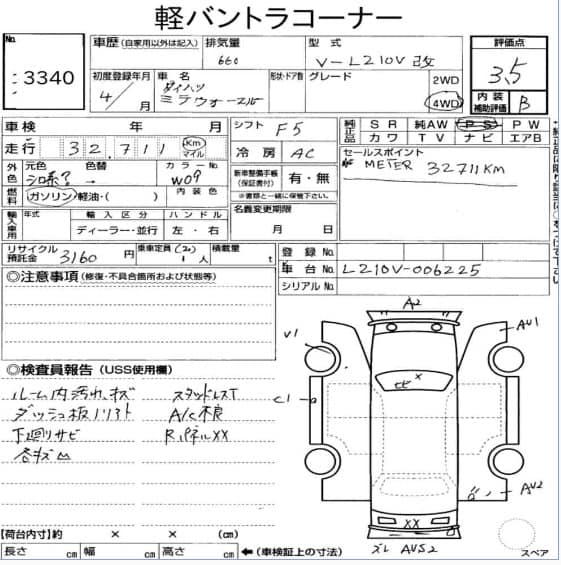 軽バントラコーナー
No.
3340
車歴 (自家用以外は記入) 排気量 660
型式 V-L210V 改
評価点 3.5
初度登録年月 4/ 月
車名 ダイハツ ミラウォースルー
形状・ドア数 グレード
2WD
4WD
内装補助評価 B
車検 年 月
シフト F5
純正品 SR 純AW PS PW
カワ TV ナビ エアB
走行 32,711 Km マイル
冷房 AC
セールスポイント
METER 32711KM
外色 元色 色替 カラーNo.
シロ系? → W09
新車整備手帳 (保証書付) 有・無
※書類と一緒に保管下さい。
燃料 ガソリン/軽油・( ) 内装色
名義変更期限 月 日
輸入車用 年式 輸入区分 ハンドル
ディーラー・並行 左・右
リサイクル預託金 3160 円
乗車定員 人 積載量 t
登録No.
車台No. L210V-006225
シリアルNo.
◎注意事項 (修復・不具合箇所および状態等)
◎検査員報告 (USS使用欄)
ルーム内汚れ、キズ スタッドレスT
ダッシュ板ノリアト A/C不良
下廻りサビ RパネルXX
各キズ凹
A2
V1
AV1
ヒビ X
C1
AV2
XX
ズレ AVS2
スペア
【荷台内寸】約 × × (cm)
長さ cm 幅 cm 高さ cm ←(車検証上の寸法)